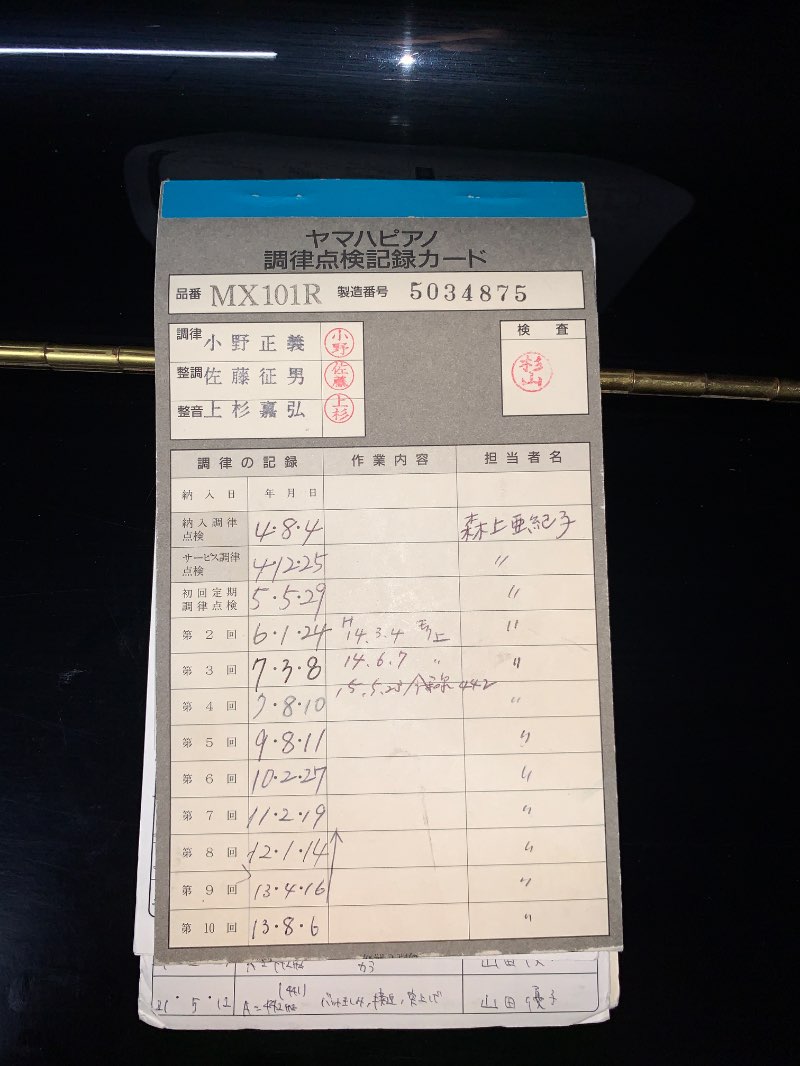 ヤマハピアノ
調律点検記録カード
品番 MX101R 製造番号 5034875
調律 小野正義 小野
整調 佐藤征男 佐藤
整音 上杉嘉弘 上杉
検査
杉山
調律の記録 作業内容 担当者名
納入日 年月日
納入調律点検 4・8・4 森上亜紀子
サービス調律点検 4・12・25 〃
初回定期調律点検 5・5・29 〃
第2回 6・1・24 H14.3.4 〃
第3回 7・3・8 14.6.7 〃 〃
第4回 7・8・10 15.5.23 442 〃
第5回 9・8・11 〃
第6回 10・2・27 〃
第7回 11・2・19 〃
第8回 12・1・14 〃
第9回 13・4・16 〃
第10回 13・8・6 〃
21・5・12 (441) A=442 山田優子